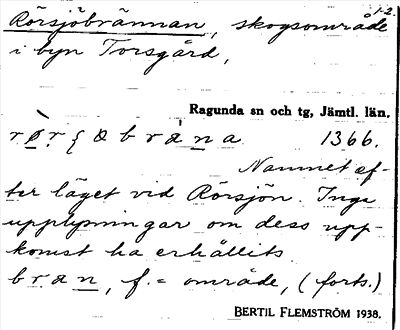 1-2.
Rörsjöbrännan, skogsområde
i byn Torsgård,
Ragunda sn och tg, Jämtl. län.
1366.
Namnet ef-
ter läget vid Rörsjön. Inga
upplysningar om dess upp-
komst ha erhållits.
bran, f. = område, (forts.)
BERTIL FLEMSTRÖM 1938.